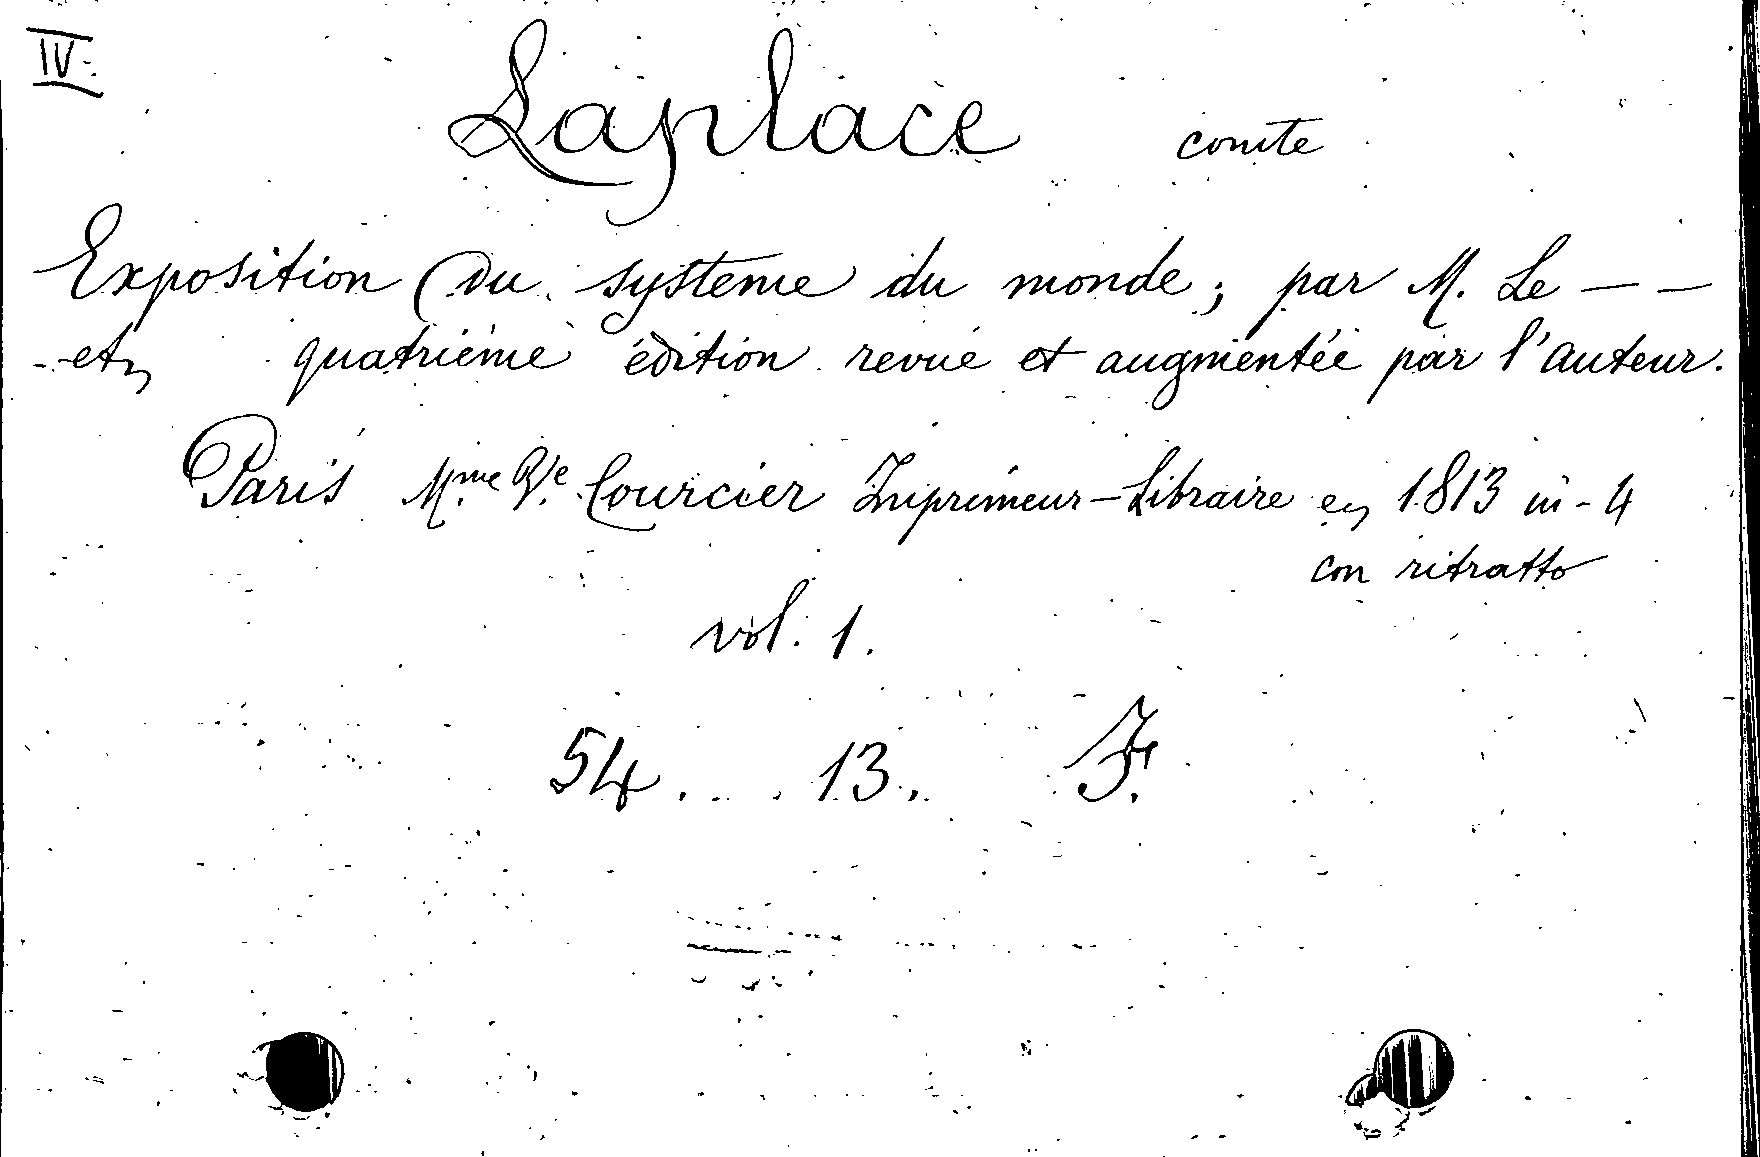 IV.
Laplace comte
Exposition du systeme du monde; par M. Le — —
etc quatriéme édition revue et augmentée par l'auteur.
Paris Mme Ve Courcier Imprimeur-Libraire en 1813 in-4
con ritratto
vol. 1.
54. 13. F.